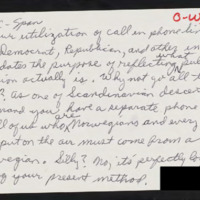 O-W
C-Span
ur utilization of call in phone lin
Democrat, Republican, and other in
dates the purpose of reflecting what
public
ion actually is. Why not just all t
? As one of Scandinavian descen
mand you have a separate phone
all of us who are Norwegians and every
put on the air must come from a
wegian. Silly? No, its perfectly lo
g your present method.